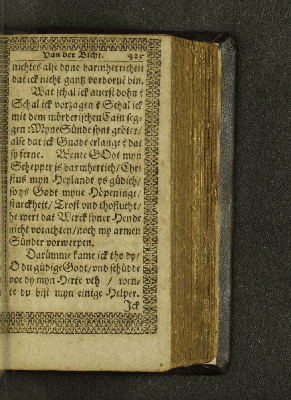 Van der Bicht. 925
nichtes alse dyne barmherticheit
dat ick nicht gantz vordorue bin.
Wat schal ick auerst dohn?
Schal ick vorzagen? Schal ick
mit dem mörderischen Cain seg-
gen: Myne Sünde synt gröter/
alse dat ick Gnade erlange? dat
sy ferne. Wente GOdt myn
Schepper ys barmhertich/ Chri-
stus myn Heylandt ys güdich/
ys Godt myne Höpeninge/
starckheit/ Trost vnd thoflucht/
he wert dat Werck syner Hende
nicht vorachten/ noch my armen
Sünder vorwerpen.
Darümme kame ick tho dy/
O du güdige Godt/ vnd schüdde
vor dy myn Herte vth / wen-
te du bist myn einige Helper.
Ick